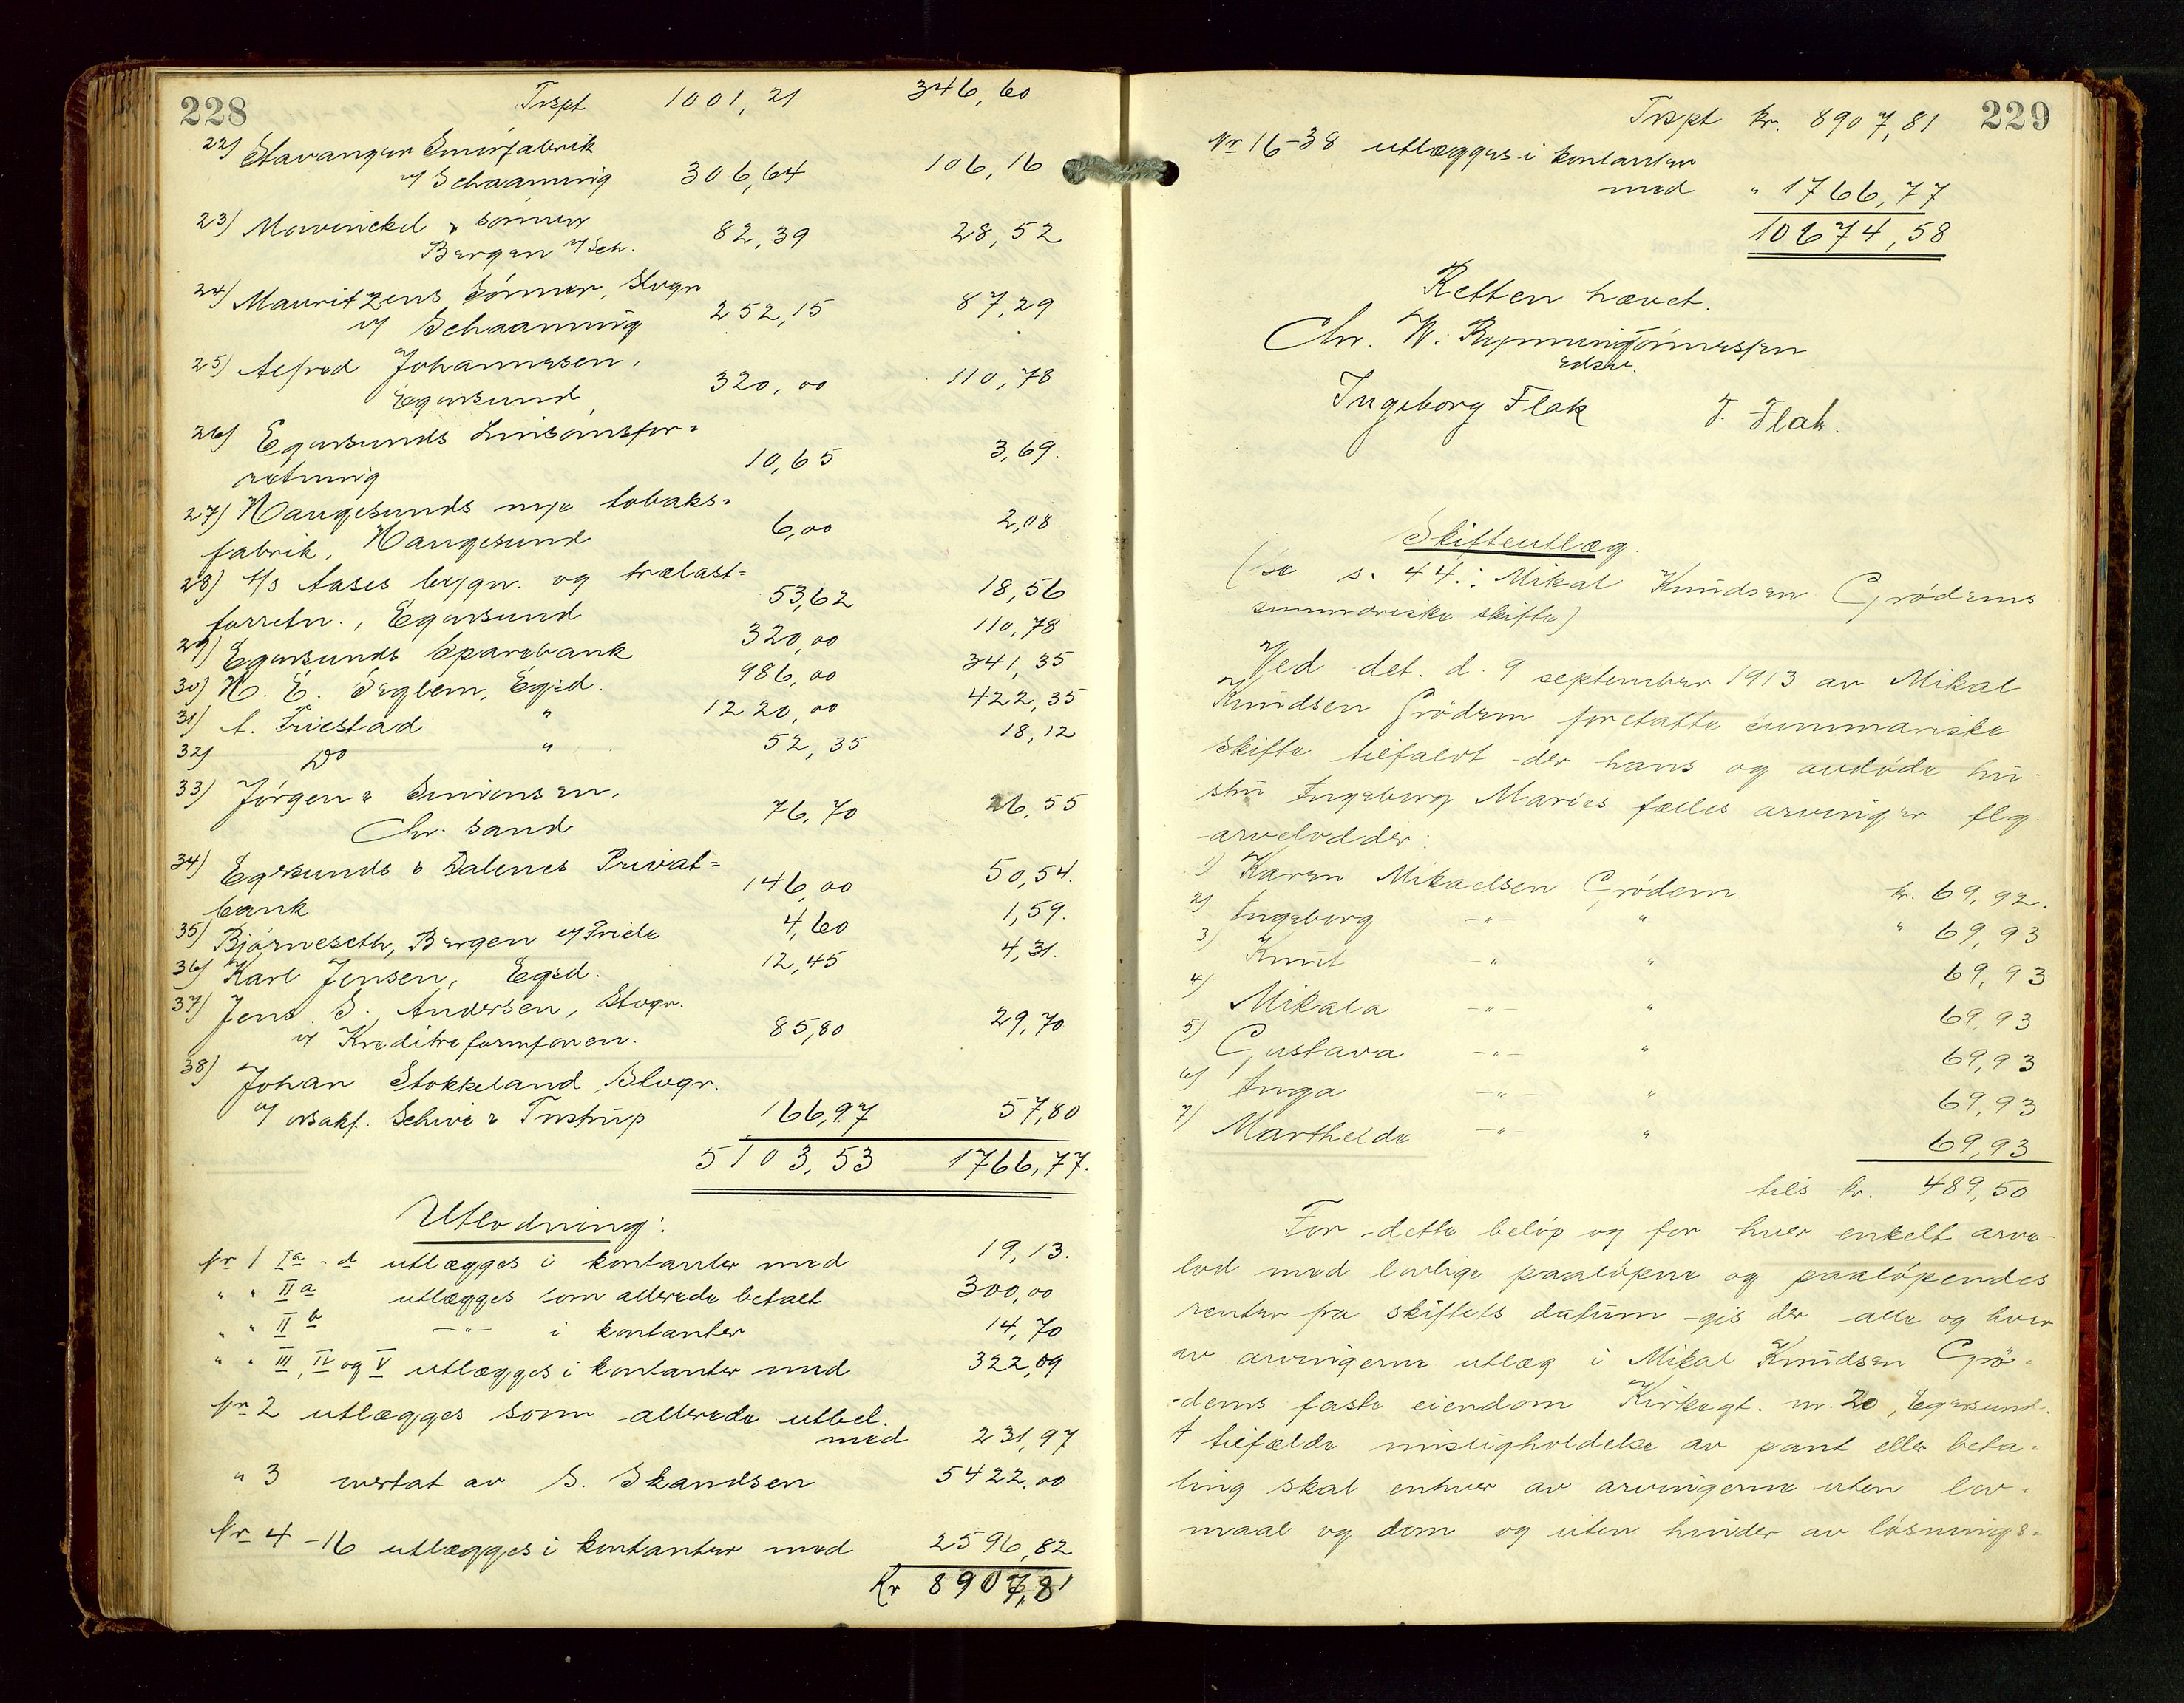 228
Trspt 1001,21 346,60
22) Stavanger Smørfabrik
v/ Schaanning 306,64 106,16
23) Mowinckel & sønner
Bergen v/ Sch. 82,39 28,52
24) Mauritzens Sønner, Stvgr
v/ Schaanning 252,15 87,29
25) Alfred Johannesen,
Egersund 320,00 110,78
26) Egersunds Linsömsfor=
retning 10,65 3,69.
27) Haugesunds nye tobaks=
fabrik, Haugesund 6,00 2,08
28) A/S Aases bygn. og trælast=
forretn., Egersund 53,62 18,56
29) Egersunds Sparebank 320,00 110,78
30) H. E. Seglem, Egsd. 986,00 341,35
31) A. Friestad " 1220,00 422,35
32) Do " 52,35 18,12
33) Jørgen Simensen,
Chr. sand 76,70 26,55
34) Egersunds & Dalenes Privat=
bank 146,00 50,54.
35) Bjørneseth, Bergen v/ Priele 4,60 1,59.
36) Karl Jensen, Egsd. 12,45 4,31.
37) Jens S. Andersen, Stvgr.
v/ Kreditreformforen. 85,80 29,70
38) Johan Stokkeland, Stvgr.
v/ orsakf. Schive & Tustrup 166,97 57,80
5103,53 1766,77.
Utlodning:
Nr 1 Ia - d utlægges i kontanter med 19,13.
" " IIa utlægges som allerede betalt 300,00
" " IIb -"- i kontanter 14,70
" " III, IV og V utlægges i kontanter med 322,09
Nr 2 utlægges som allerede utbet.
med 231,97
" 3 overtat av S. Skandsen 5422,00
Nr 4 - 16 utlægges i kontanter med 2596,82
Kr 8907,81
229
Trspt kr. 8907,81
Nr 16-38 utlægges i kontanter
med " 1766,77
10674,58
Retten hævet.
Chr. W.
edsv.
Ingeborg Flak T. Flak.
Skifteutlæg.
(se s. 44.: Mikal Knudsen Grødems
summariske skifte)
Ved det. d. 9 september 1913 av Mikal
Knudsen Grødem foretatte summariske
skifte tilfaldt der hans og avdøde hu-
stru Ingeborg Maries fælles arvinger flg.
arvelodder:
1) Karen Mikaelsen Grødem kr. 69,92.
2) Ingeborg -"- " " 69,93
3) Knut -"- " 69,93
4) Mikala -"- " 69,93
5) Gustava -"- " 69,93
6) Inga -"- " 69,93
7) Marthelde -"- " 69,93
tils kr. 489,50
For dette beløp og for hver enkelt arve-
lod med lovlige paaløpne og paaløpendes
renter fra skiftets datum gis der alle og hver
av arvingerne utlæg i Mikal Knudsen Grö-
dems faste eiendom Kirkegt. nr. 20, Egersund.
I tilfælde misligholdelse av pant eller beta=
ling skal enhver av arvingerne uten lov=
maal og dom og uten hinder av løsnings=